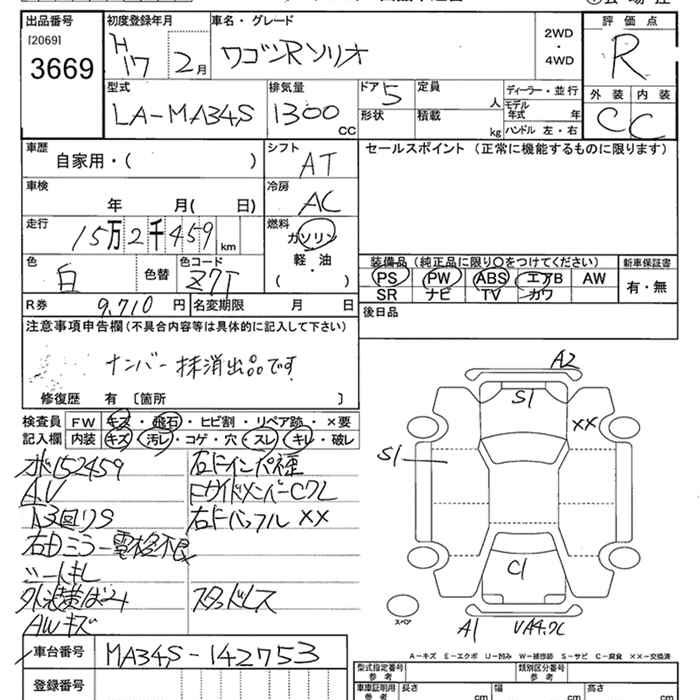 出品番号 初度登録年月 車名・グレード 2WD・4WD 評価点
[2069] 3669 H17 2月 ワゴンRソリオ R
型式 排気量 ドア 定員 ディーラー・並行 外装 内装
LA-MA34S 1300 CC 5 人 モデル年式 年 C C
形状 積載 kg ハンドル 左・右
車歴 自家用・( ) シフト AT セールスポイント (正常に機能するものに限ります)
車検 年 月( 日) 冷房 AC
走行 15万2千459 km 燃料 ガソリン 軽・油 ( )
色 白 色替 色コード Z7T
装備品 (純正品に限り○をつけてください) 新車保証書
PS PW ABS エアB AW 有・無
SR ナビ TV カワ
R券 9,710 円 名変期限 月 日
後日品
注意事項申告欄 (不具合内容等は具体的に記入して下さい)
ナンバー抹消出品です
修復歴 有 〔箇所 〕
検査員 FW キズ・飛石・ヒビ割・リペア跡・×要
記入欄 内装 キズ・汚レ・コゲ・穴・スレ・キレ・破レ
152459
A.V
シートキレ
AWキズ
スタッドレス
A2
S1
XX
S1
C1
A1
スペア
A-キズ E-エクボ U-凹み W-補修跡 S-サビ C-腐食 XX-交換済
車台番号 MA34S-142753
登録番号
型式指定番号 参考 類別区分番号 参考
車庫証明用 参考 長さ cm 幅 cm 高さ cm